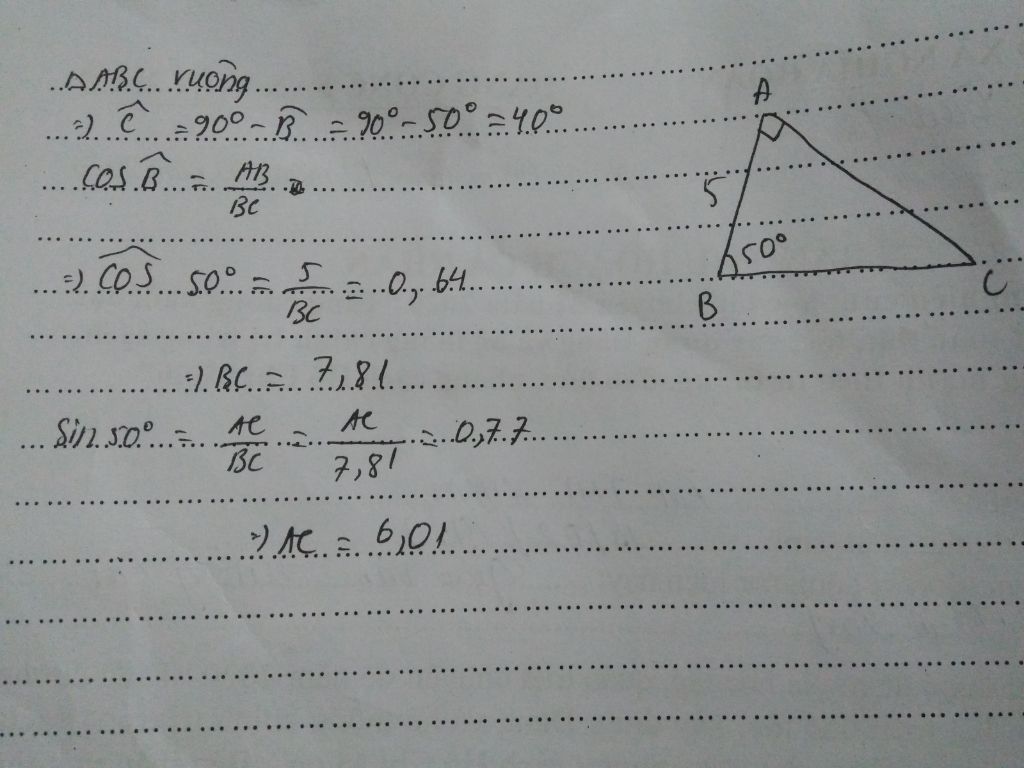 △ABC vuông
=) Ĉ = 90° - B̂ = 90° - 50° = 40°
COS B̂ = AB/BC =
=) COS 50° = 5/BC = 0,64
=) BC = 7,81
Sin 50° = AC/BC = AC/7,81 = 0,77
=) AC = 6,01
A
5
50°
B
C